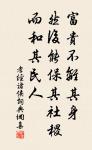 富貴不離其身
然後能保其社稷
而和其民人
孝經諸侯詞典網集